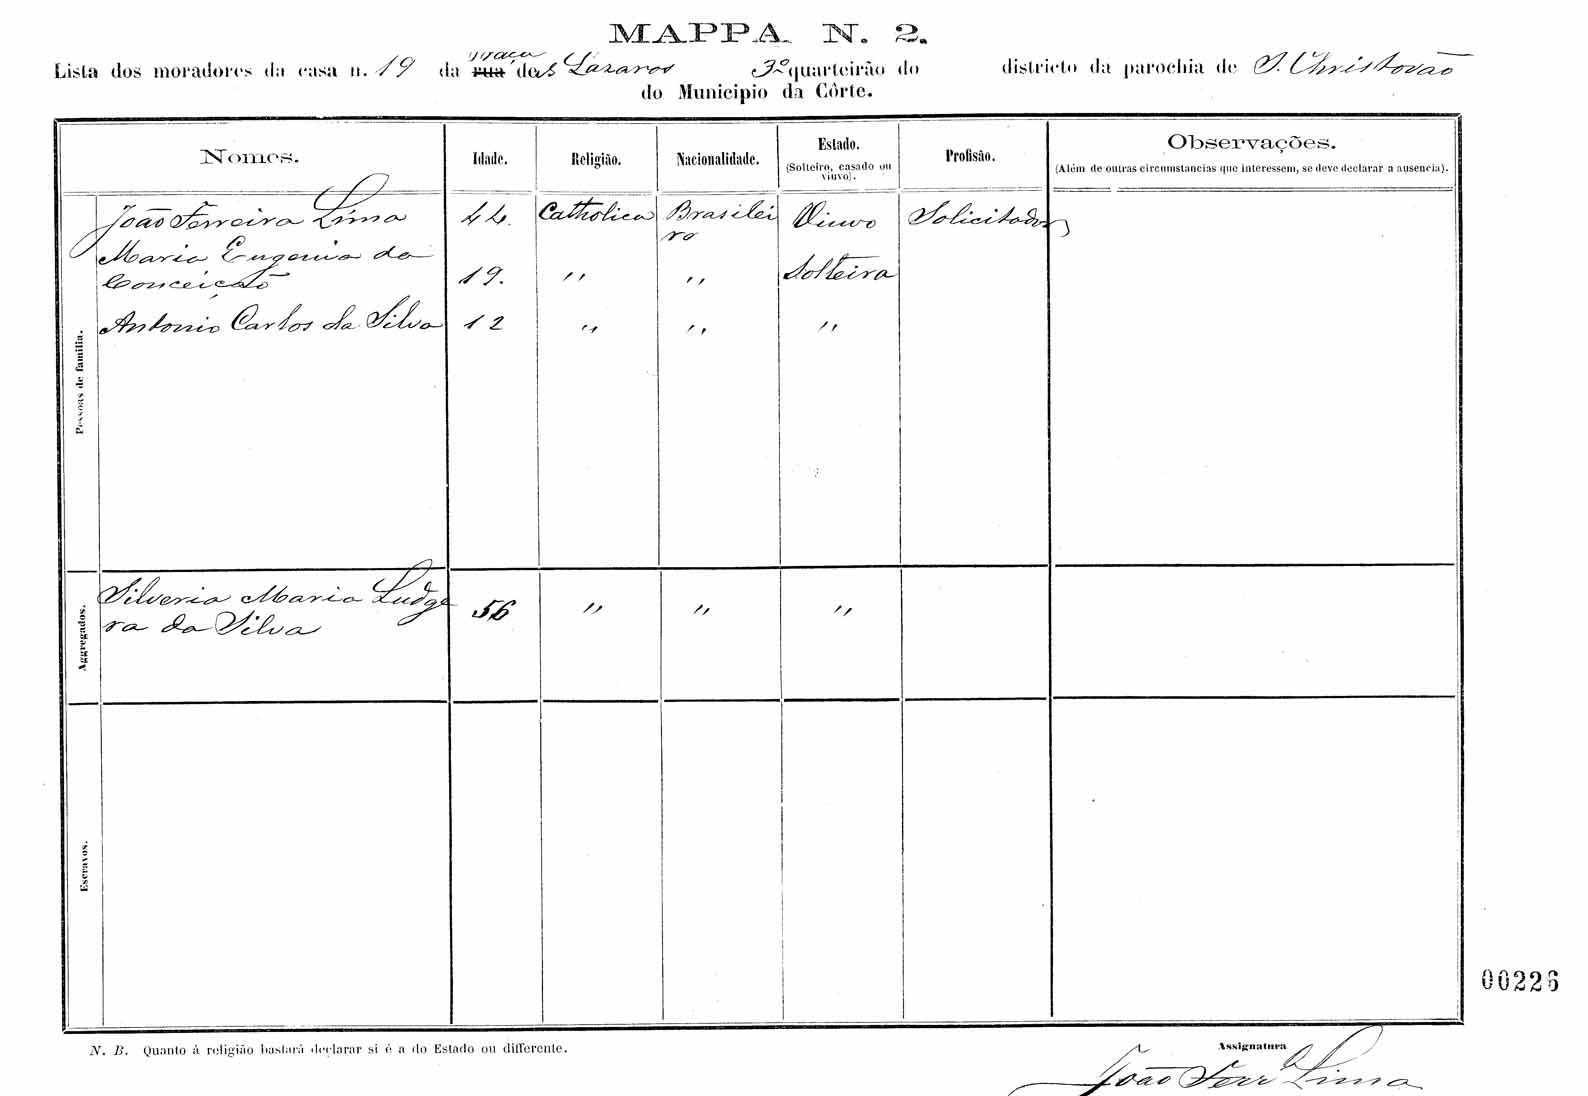 MAPPA N. 2.
praça
Lista dos moradores da casa n. 19 da rua dos Lazaros 3º quarteirão do districto da parochia de S. Christovão
do Municipio da Côrte.
Nomes. Idade. Religião. Nacionalidade. Estado. (Solteiro, casado ou viuvo). Profisão. Observações. (Além de outras circumstancias que interessem, se deve declarar a ausencia).
Pessoas de familia.
João Ferreira Lima 44. Catholica Brasilei Viuvo Solicitador
ro
Maria Eugenia da
Conceição 19. " " Solteira
Antonio Carlos da Silva 12 " " "
Aggregados.
Silveria Maria Ludge 56 " " "
ra da Silva
Escravos.
00226
N. B. Quanto á religião bastará declarar si é a do Estado ou differente.
Assignatura
João Ferrª Lima